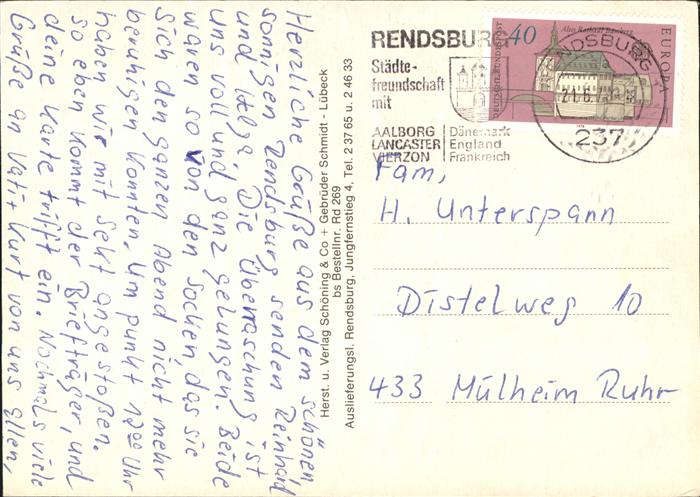 Herzliche Grüße aus dem schönen,
sonnigen Rendsburg senden Reinhard
und Helga. Die Überraschung ist
uns voll und ganz gelungen. Beide
waren so von den Socken das sie
sich den ganzen Abend nicht mehr
beruhigen konnten. Um punkt 12⁰⁰ Uhr
haben wir mit Sekt angestoßen.
So eben kommt der Briefträger, und
deine Karte trifft ein. Nochmals viele
Grüße an Vati + Kurt von uns allen,
Herst. u. Verlag Schöning & Co + Gebrüder Schmidt - Lübeck
bs Bestellnr. Rd 269
Auslieferungsl. Rendsburg, Jungfernstieg 4, Tel. 2 37 65 u. 2 46 33
RENDSBURG
Städte-
freundschaft
mit
AALBORG Dänemark
LANCASTER England
VIERZON Frankreich
40
Altes Rathaus Bamberg
EUROPA
DEUTSCHE BUNDESPOST
RENDSBURG
237
Fam,
H. Unterspann
Distelweg 10
433 Mülheim Ruhr